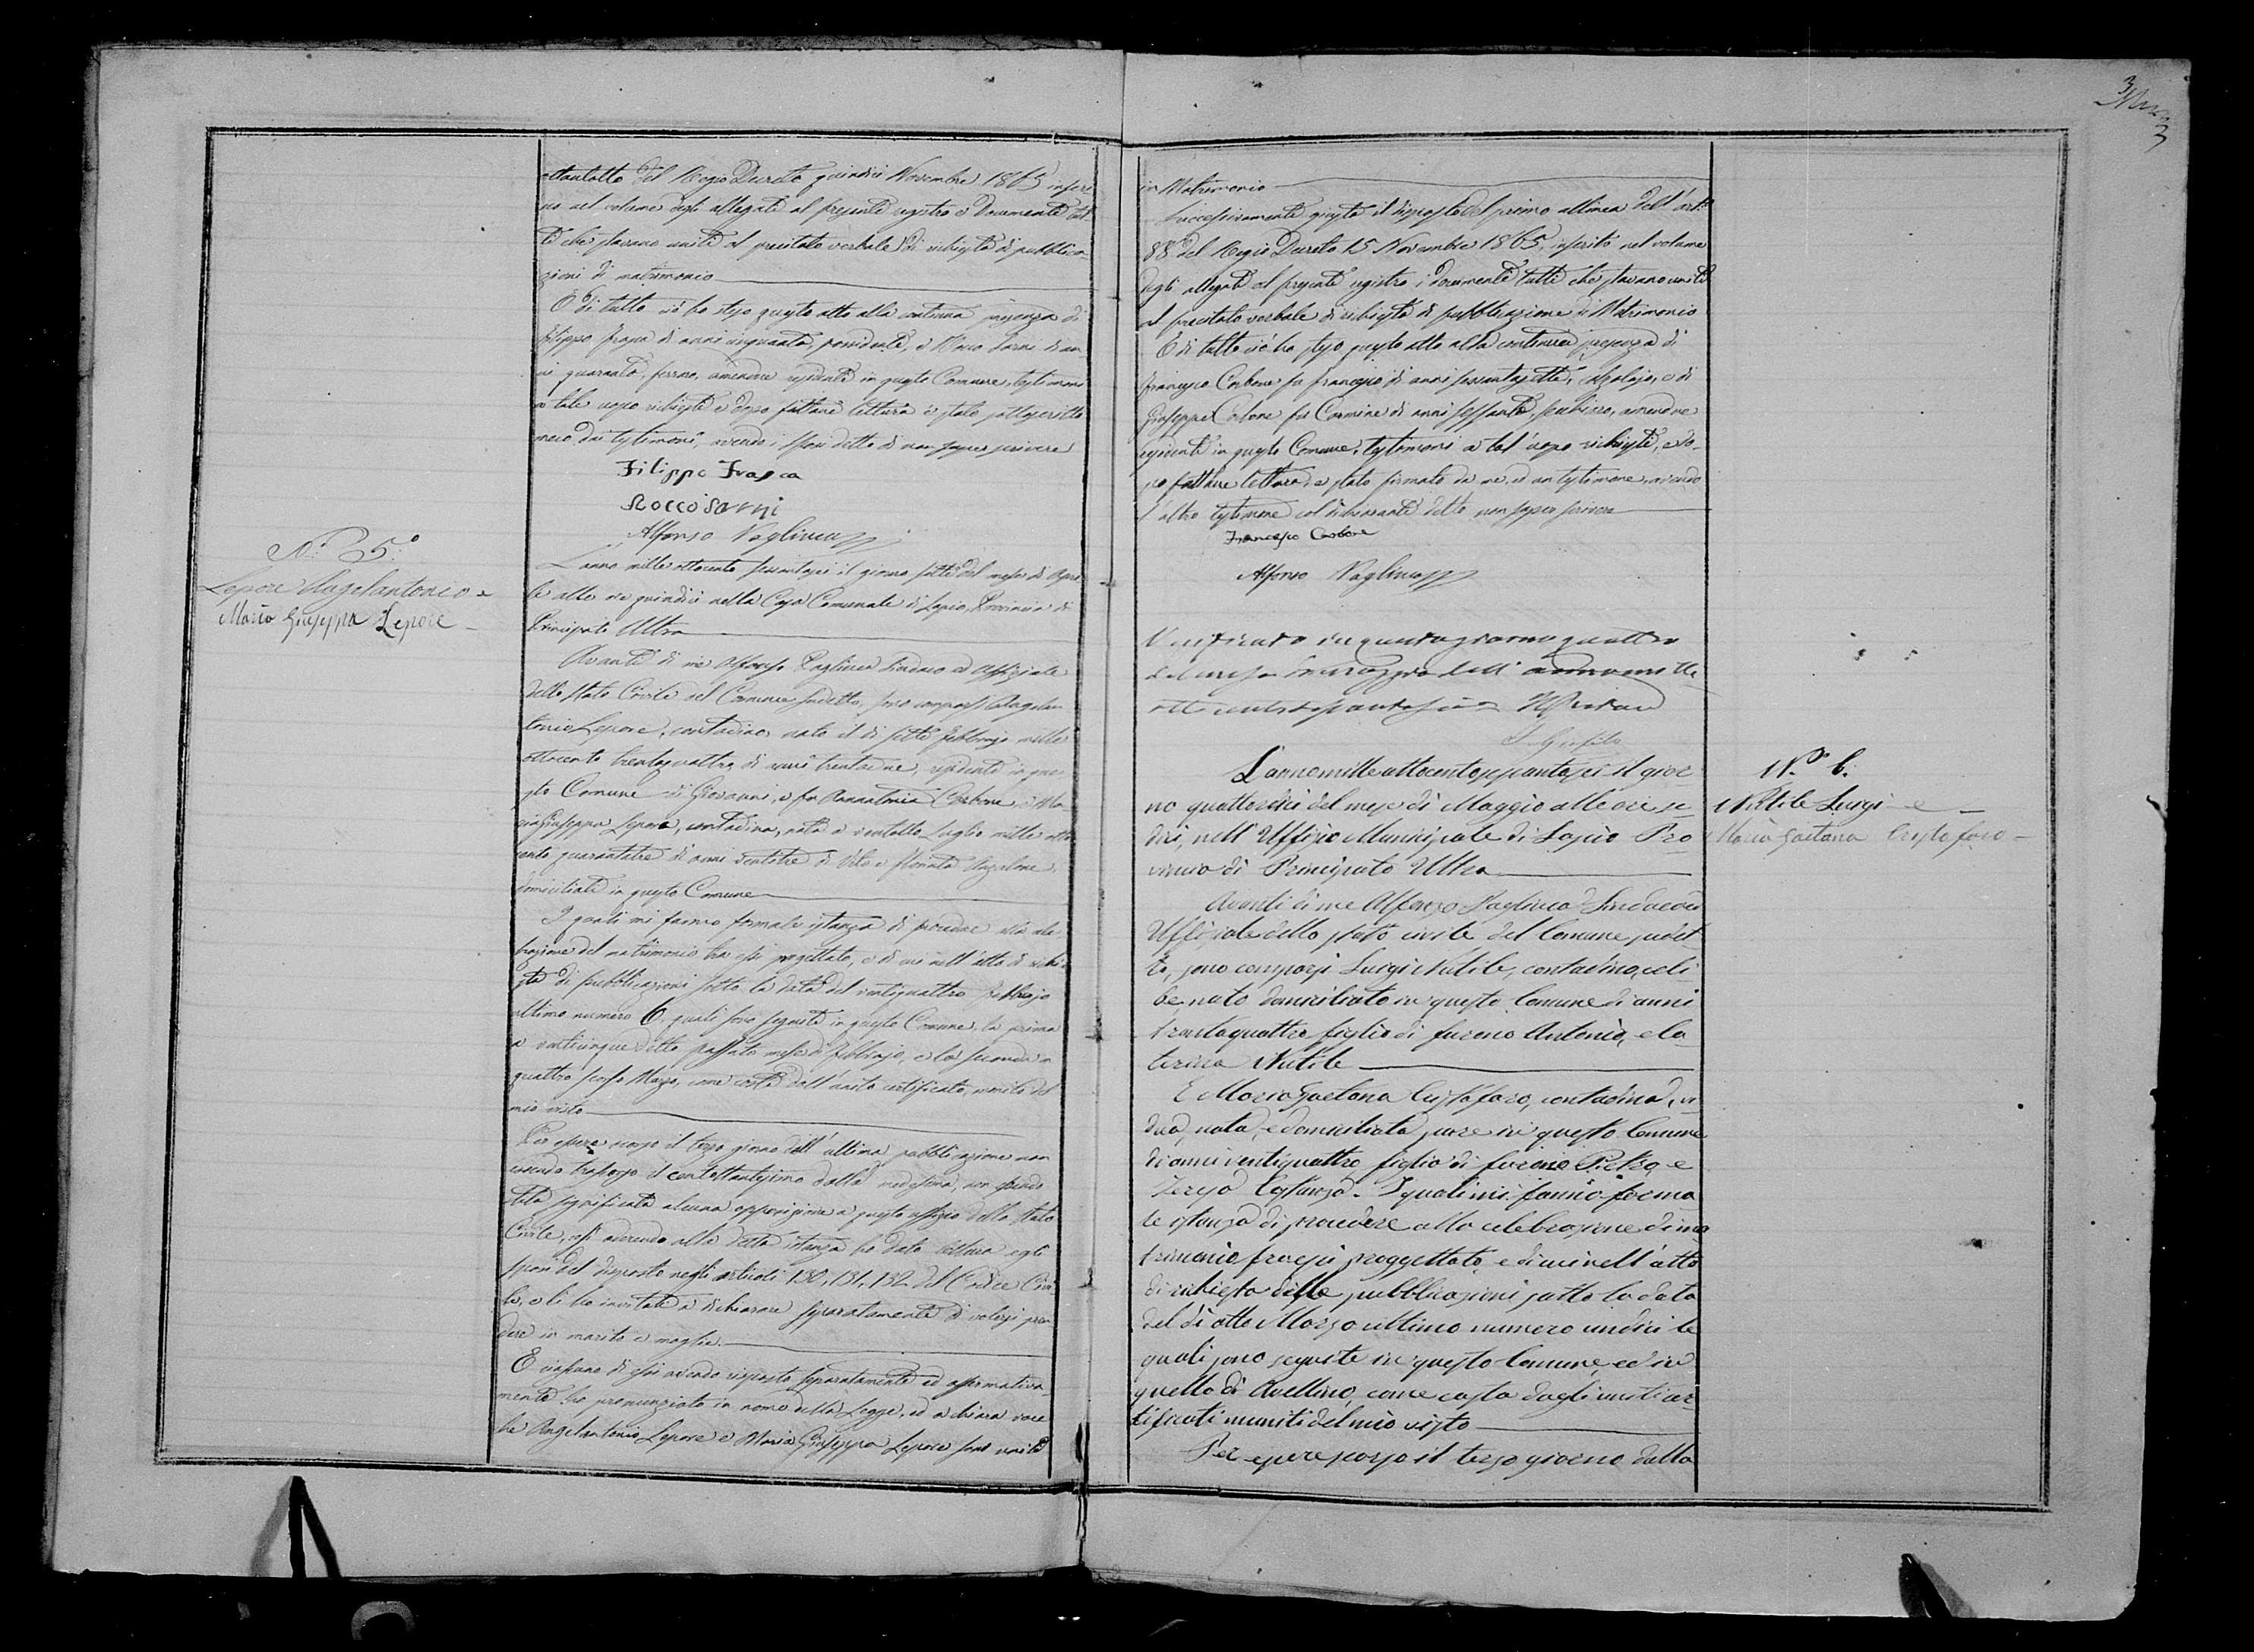 ottantotto del Regio Decreto quindici Novembre 1865 inseri
no nel volume degli allegati al presente registro i documenti tut
ti che stavano uniti al precitato verbale di richiesta di pubblica
zioni di matrimonio
E di tutto ciò ho steso questo atto alla continua presenza di
Filippo Frasca di anni cinquanta, possidente, e Rocco Sarni di an
ni quaranta, ferraro, amendue residenti in questo Comune, testimoni
a tale uopo richiesti e dopo fattane lettura è stato sottoscritto
meco dai testimoni, avendo i sposi detto di non saper scrivere
Filippo Frasca
Rocco Sarni
Alfonso Pagliuca
N.° 5.°
Lepore Angelantonio e
Maria Giuseppa Lepore
L'anno mille ottocento sessantasei il giorno sette del mese di Apri
le alle ore quindici nella Casa Comunale di Lapio, Provincia di
Principato Ultra
Avanti di me Alfonso Pagliuca Sindaco ed Uffiziale
dello Stato Civile del Comune sudetto, sono comparsi Angelan
tonio Lepore, contadino, nato il dì sette Febbrajo mille
ottocento trentaquattro, di anni trentadue, residente in que
sto Comune di Giovanni, e fu Annantonia Carbone, e Ma
ria Giuseppa Lepore, contadina, nata a ventotto Luglio mille otto
cento quarantatre di anni ventitre di Vito e Donata Anzalone,
domiciliati in questo Comune
I quali mi fanno formale istanza di procedere alla cele
brazione del matrimonio tra essi progettato, e di cui nell'atto di richie
sta di pubblicazioni sotto la data del ventiquattro Febbrajo
ultimo numero 6 quali sono seguite in questo Comune, la prima
a venticinque detto passato mese di Febbrajo, e la seconda a
quattro scorso Marzo, come costa dall'unito certificato, munito del
mio visto
Per essere scorso il terzo giorno dell'ultima pubblicazione non
essendo trascorso il centottantesimo dalla medesima, non essendo
stata significata alcuna opposizione a questo uffizio dello Stato
Civile, così aderendo alla detta istanza ho dato lettura agli
sposi del disposto negli articoli 130, 131, 132 del Codice Civi
le, e li ho invitati a dichiarare separatamente di volersi pren
dere in marito e moglie
E ciascuno di essi avendo risposto separatamente ed affermativa
mente ho pronunziato in nome della Legge, ed a chiara voce
che Angelantonio Lepore e Maria Giuseppa Lepore sono uniti
in Matrimonio
Successivamente giusta il disposto del primo allinea dell'art.°
88 del Regio Decreto 15 Novembre 1865, inserito nel volume
degli allegati al presente registro i documenti tutti che stavano uniti
al precitato verbale di richiesta di pubblicazione di Matrimonio
E di tutto ciò ho steso questo atto alla continua presenza di
Francesco Carbone fu Francesco di anni sessantasette, calzolajo, e di
Giuseppe Carbone fu Carmine di anni sessanta, amendue
residenti in questo Comune, testimoni a tal'uopo richiesti, e do
po fattane lettura, è stato firmato da me, ed un testimone, avendo
l'altro testimone coi dichiaranti detto non saper scrivere
Francesco Carbone
Alfonso Pagliuca
Verificato in questo giorno quattro
del mese Maggio dell'anno mille
ottocento sessantasei
L'anno mille ottocento sessantasei il gior
no quattordici del mese di Maggio alle ore se
dici, nell'Uffizio Municipale di Lapio Pro
vincia di Principato Ultra
N.° 6.
Nutile Luigi e
Maria Gaetana Cristofaro
Avanti di me Alfonso Pagliuca Sindaco ed
Uffiziale dello stato civile del Comune sudet
to, sono comparsi Luigi Nutile, contadino, celi
be, nato domiciliato in questo Comune di anni
trentaquattro, figlio di furono Antonio, e Ca
terina Nutile
E Maria Gaetana Cristofaro, contadina, ve
dova, nata, e domiciliata pure in questo Comune
di anni ventiquattro figlia di furono Pietro, e
Teresa Costanza. I quali mi fanno forma
le istanza di procedere alla celebrazione di ma
trimonio fra essi proggettato, e di cui nell'atto
di richiesta delle pubblicazioni sotto la data
del dì otto Marzo ultimo numero undici le
quali sono seguite in questo Comune, ed in
quello di Avellino, come costa dagli uniti cer
tificati muniti del mio visto
Per essere scorso il terzo giorno dalla